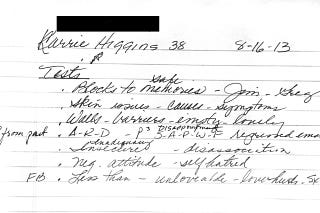 Karrie Higgins 38 8-16-13
Tests
safe
. Blocks to memories - Jim - Greg
. Skin issues - causes - symptoms
. Walls - barriers - empty - lonely
from past . A-R-D - P³ DISAPPOINTMENT S-A-P-W-F repressed emo
inadequacy
. Insecured - disassociation
. Neg. attitude - self hatred
FB . Less than - unloveable -